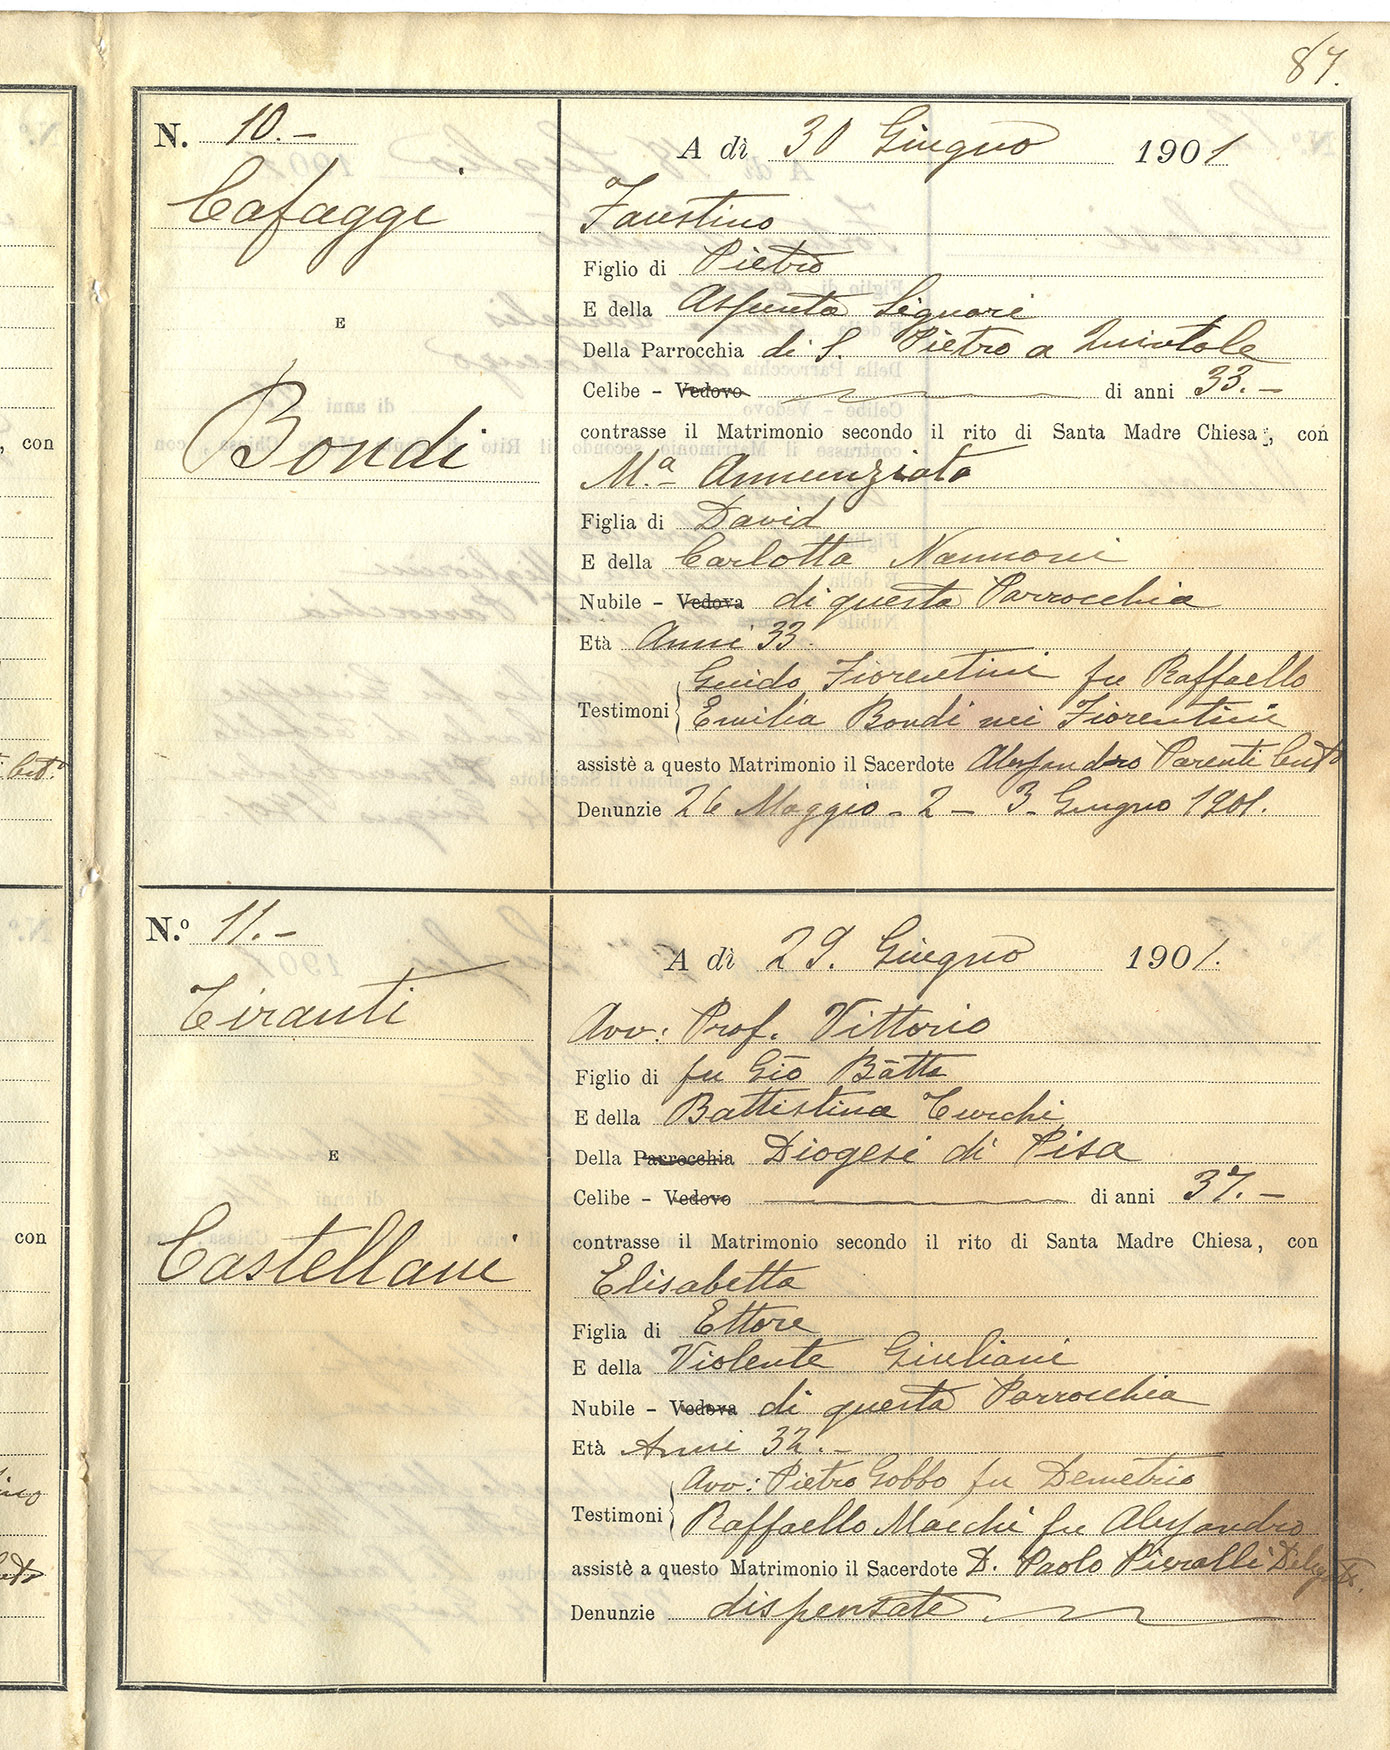 87.
N. 10.-
Cafaggi
E
Bondi
A dì 30 Giugno 1901
Faustino
Figlio di Pietro
E della Assunta Signori
Della Parrocchia di S. Pietro a Quintole
Celibe - Vedovo di anni 33.-
contrasse il Matrimonio secondo il rito di Santa Madre Chiesa, con
M.a Annunziata
Figlia di David
E della Carlotta Nannoni
Nubile - Vedova di questa Parrocchia
Età Anni 33.
Testimoni Guido Fiorentini fu Raffaello
Emilia Bondi nei Fiorentini
assistè a questo Matrimonio il Sacerdote Alessandro Parenti
Denunzie 26 Maggio - 2 - 3 - Giugno 1901.
N.o 11.-
Tiranti
E
Castellani
A dì 29. Giugno 1901.
Avv: Prof. Vittorio
Figlio di fu Gio Batta
E della Battistina Turchi
Della Parrocchia Diogesi di Pisa
Celibe - Vedovo di anni 37.-
contrasse il Matrimonio secondo il rito di Santa Madre Chiesa, con
Elisabetta
Figlia di Ettore
E della Violente Giuliani
Nubile - Vedova di questa Parrocchia
Età Anni 32.-
Testimoni Avv: Pietro Gobbo fu Demetrio
Raffaello Macchi fu Alessandro
assistè a questo Matrimonio il Sacerdote D. Paolo Pieralli
Denunzie dispensate.
, con
con